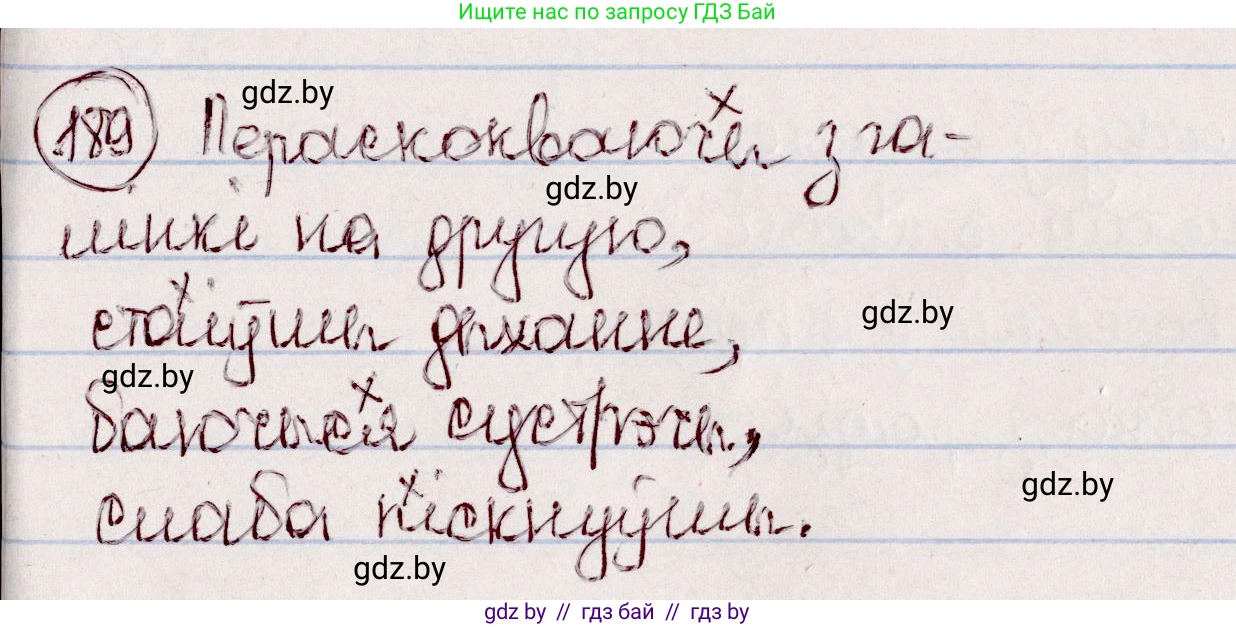 Ищите нас по запросу ГДЗ Бай
189 Пераскокваючы з га-
gdz.by
gdz.by
лінкі на другую,
стаіўшы дыханне,
gdz.by
gdz.by
баючыся сустрэчы,
gdz.by
слаба піскнуўшы.
gdz.by
gdz by // гдз бай // гдз by